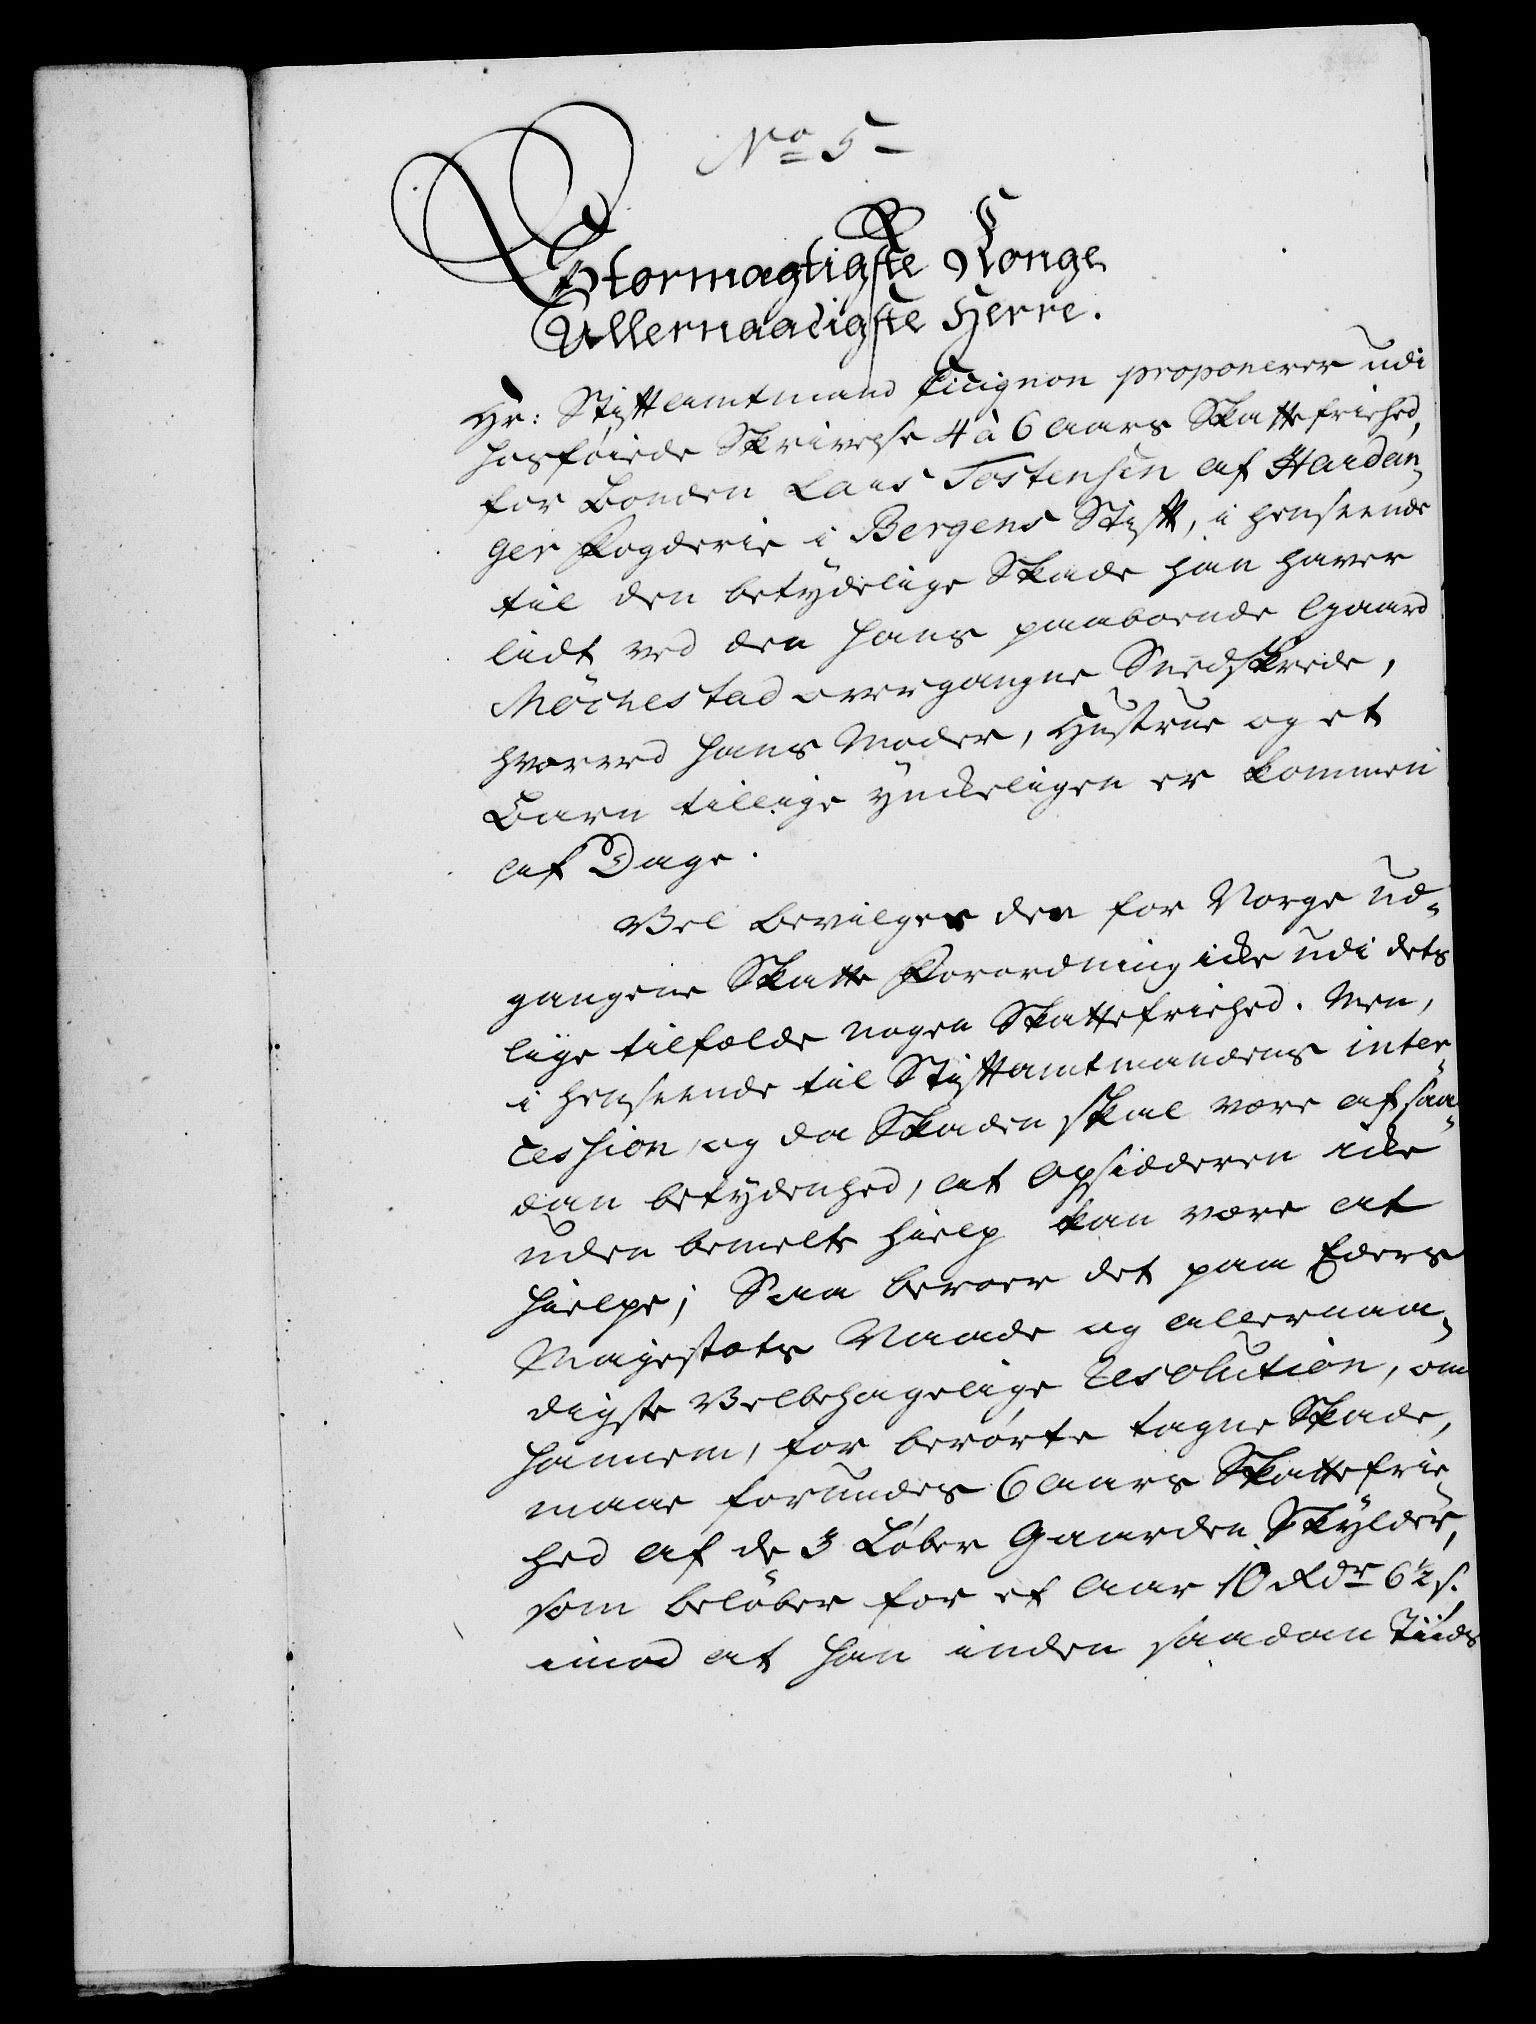 No 5
Stormægtigste Konge
Allernaadigste Herre.
Hr: Stiftamtmand Cicignon proponerer udi
hosføiede Skrivelse 4 à 6 Aars Skattefriehed,
for Bonden Lars Tostensen af Hardan-
ger Fogderie i Bergens Stift, i henseende
til den betydelige Skade han haver
lidt ved den hans paaboende Gaard
Möchestad overgangne Sneeskrede,
hvorved hans Moder, Hustrue og et
Barn tillige ynckeligen er kommen
af Dage.
Vel bevilger den for Norge ud-
gangene Skatte Forordning icke udi dets
lige tilfælde nogen Skattefriehed. Men,
i henseende til Stiftamtmandens inter-
cession, og da Skaden skal være af saa-
dan betydenhed, at Opsidderen icke
uden bemelte hielp kan være at
hielpe; Saa beroer det paa Eders
Majestæts Naade og allernaa-
digste Velbehagelige Resolution, om
hannem, for berørte tagne Skade,
maae forundes 6 Aars Skattefrie-
hed af de 3 Løber Gaarden Skylder,
som beløber for et Aar 10 Rdr 6½ s.
imod at han inden saadan Tiids